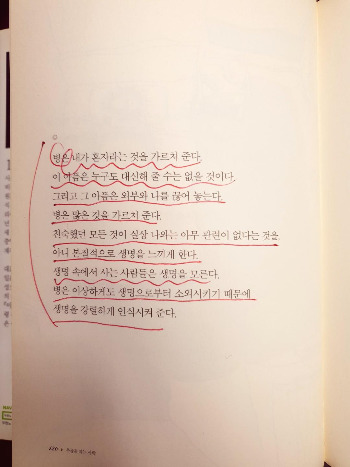 병은 내가 혼자라는 것을 가르쳐 준다.
이 아픔은 누구도 대신해 줄 수는 없을 것이다.
그리고 그 아픔은 외부와 나를 끊어 놓는다.
병은 많은 것을 가르쳐 준다.
친숙했던 모든 것이 실상 나와는 아무 관련이 없다는 것을.
아니 본질적으로 생명을 느끼게 한다.
생명 속에서 사는 사람들은 생명을 모른다.
병은 이상하게도 생명으로부터 소외시키기 때문에
생명을 강렬하게 인식시켜 준다.
220